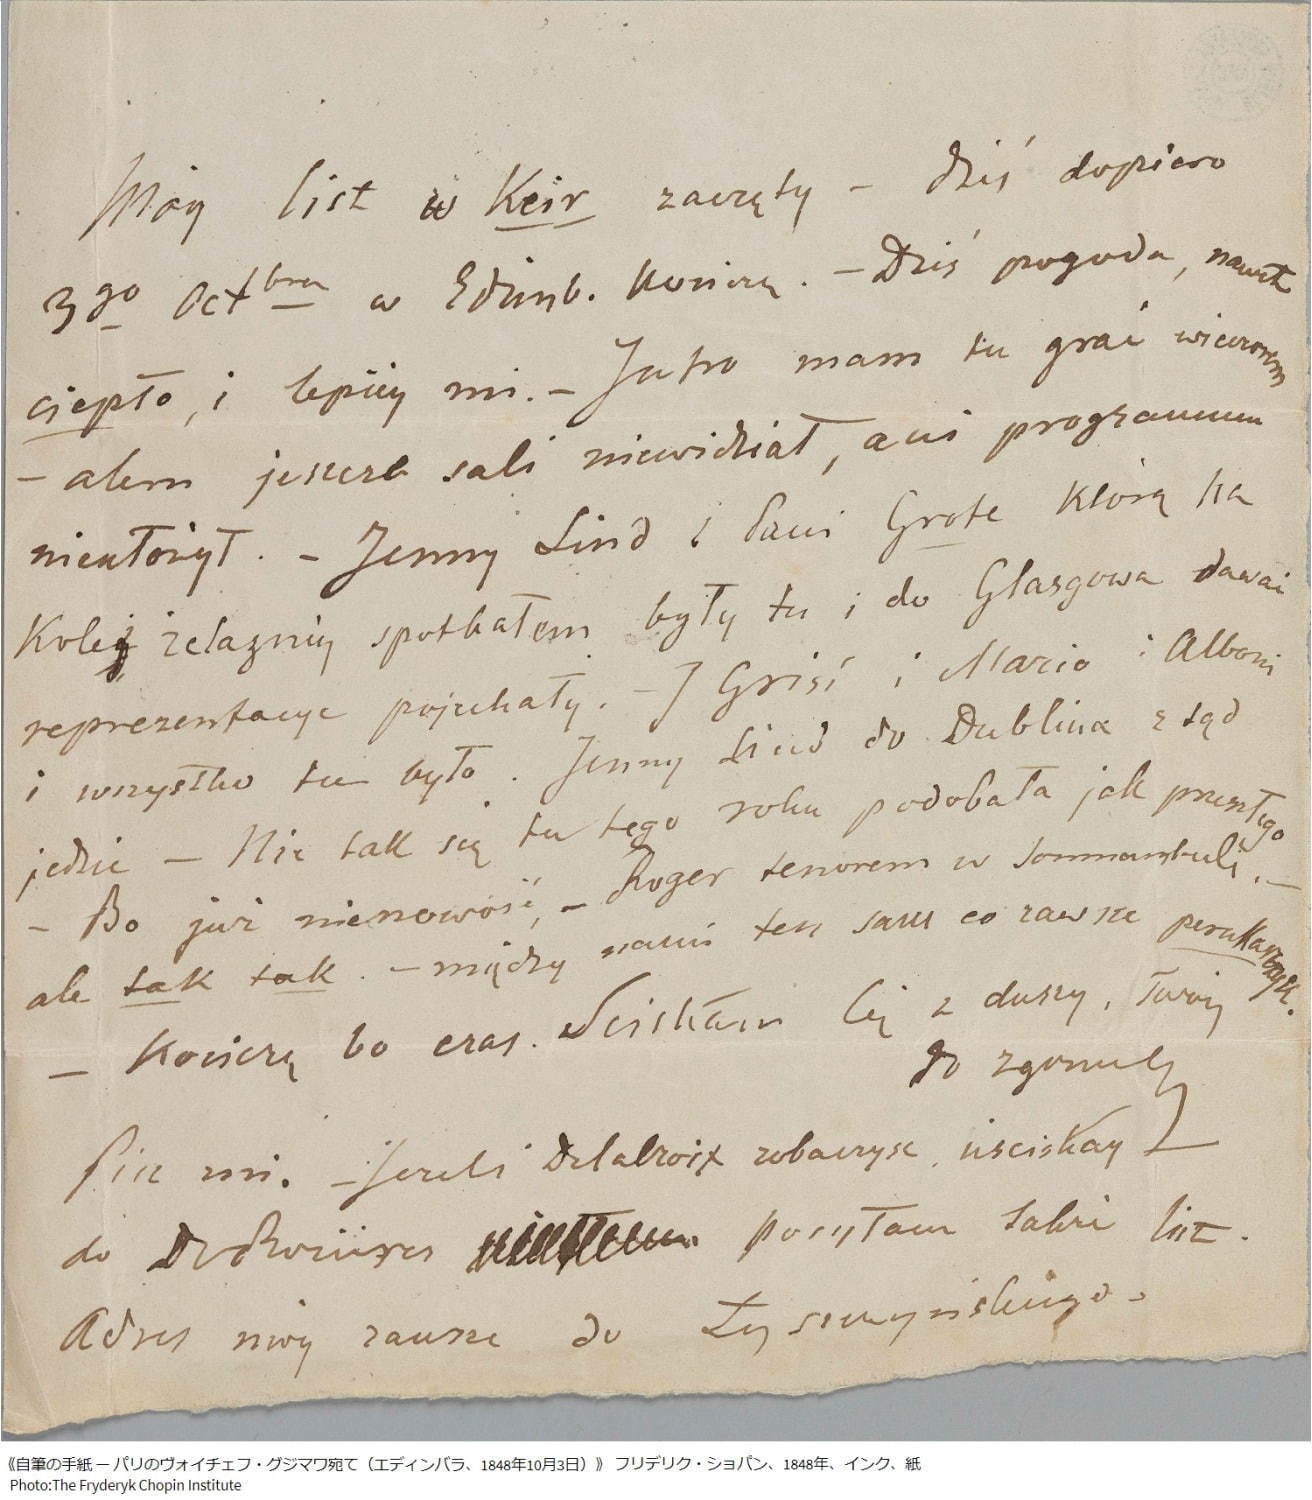 Móy list w Keir zaczęty – dziś dopiero
3go Octbra w Edimb. kończę. – Dziś pogoda, nawet
ciepło, i lepiey mi. – Jutro mam tu grać wieczorem
– alem jeszcze sali niewidział, ani programmu
nieułożył. – Jenny Lind i Pani Grote którą na
Kolei żelazney spotkałem były tu i do Glasgowa dawać
reprezentacye pojechały. – I Grisi i Mario i Alboni
i wszystko tu było. Jenny Lind do Dublina z tąd
jedzie – Nie tak się tu tego roku podobała jak przeszłego
– Bo już nienowość, – Roger tenorem w Somnambuli. –
ale tak tak. – między nami ten sam co zawsze perukarczyk.
– Kończę bo czas. Sciskam Cię z duszy, Twóy
do zgonu
Pisz mi. – Jeżeli Delacroix zobaczysz uściskay
do De Rozières posyłam także list.
Adres móy zawsze do Łyszczyńskiego –
《自筆の手紙 ― パリのヴォイチェフ・グジマワ宛て（エディンバラ、1848年10月3日）》 フリデリク・ショパン、1848年、インク、紙
Photo:The Fryderyk Chopin Institute